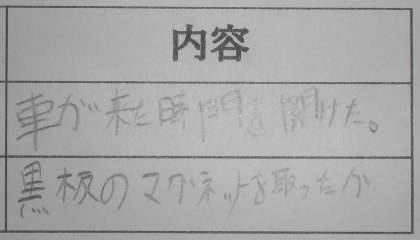 内容
車が来た時門を開けた。
黒板のマグネットを取ったか